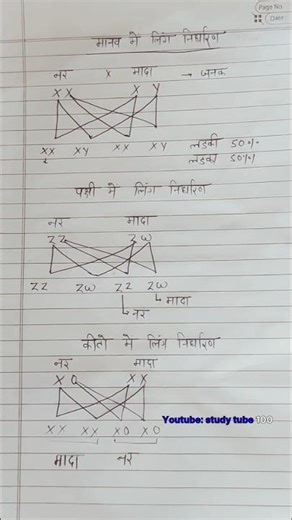 Page No
Date
मानव में लिंग निर्धारण
नर x मादा → जनक
X X X Y
XX XY XX XY लडकी 50%
लडका 50%
पक्षी में लिंग निर्धारण
नर मादा
Z Z Z W
ZZ ZW ZZ ZW
मादा
नर
कीटो में लिंग निर्धारण
नर मादा
X O X X
Youtube: study tube 100
XX XX XO XO
मादा नर